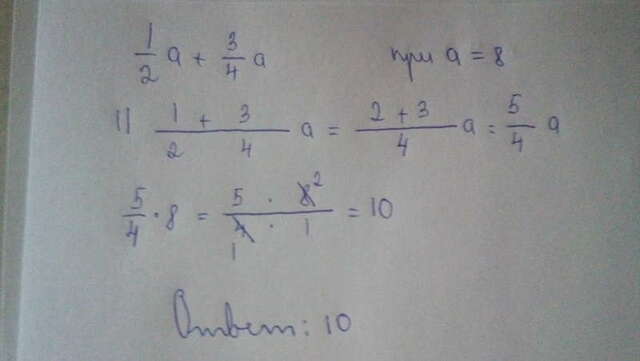 1/2 a + 3/4 a при a = 8
1) (1 + 3)/(2 4) a = (2 + 3)/4 a = 5/4 a
5/4 · 8 = (5 · 8 2)/(4 1 · 1) = 10
Ответ: 10